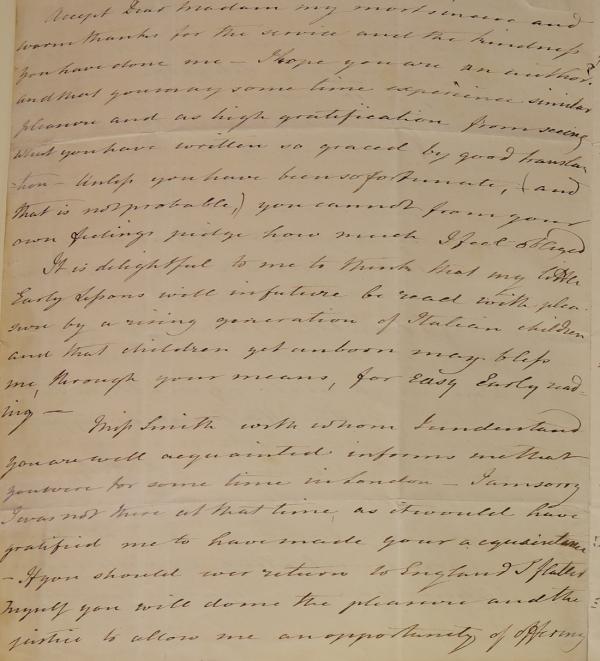 Accept Dear Madam my most sincere and
warm thanks for the service and the kindness
you have done me – I hope you are an author
and that you may some time experience similar
pleasure and as high gratification from seeing
what you have written so graced by good transla
-tion – Unless you have been so fortunate, (and
that is not probable,) you cannot from your
own feelings judge how much I feel obliged
It is delightful to me to think that my little
Early Lessons will in future be read with plea-
sure by a rising generation of Italian children
and that children yet unborn may bless
me, through your means, for easy Early read-
ing –
Miss Smith with whom I understand
you are well acquainted informs me that
you were for some time in London – I am sorry
I was not there at that time as it would have
gratified me to have made your acquaintance
– If you should ever return to England I flatter
myself you will do me the pleasure and the
justice to allow me an opportunity of offering